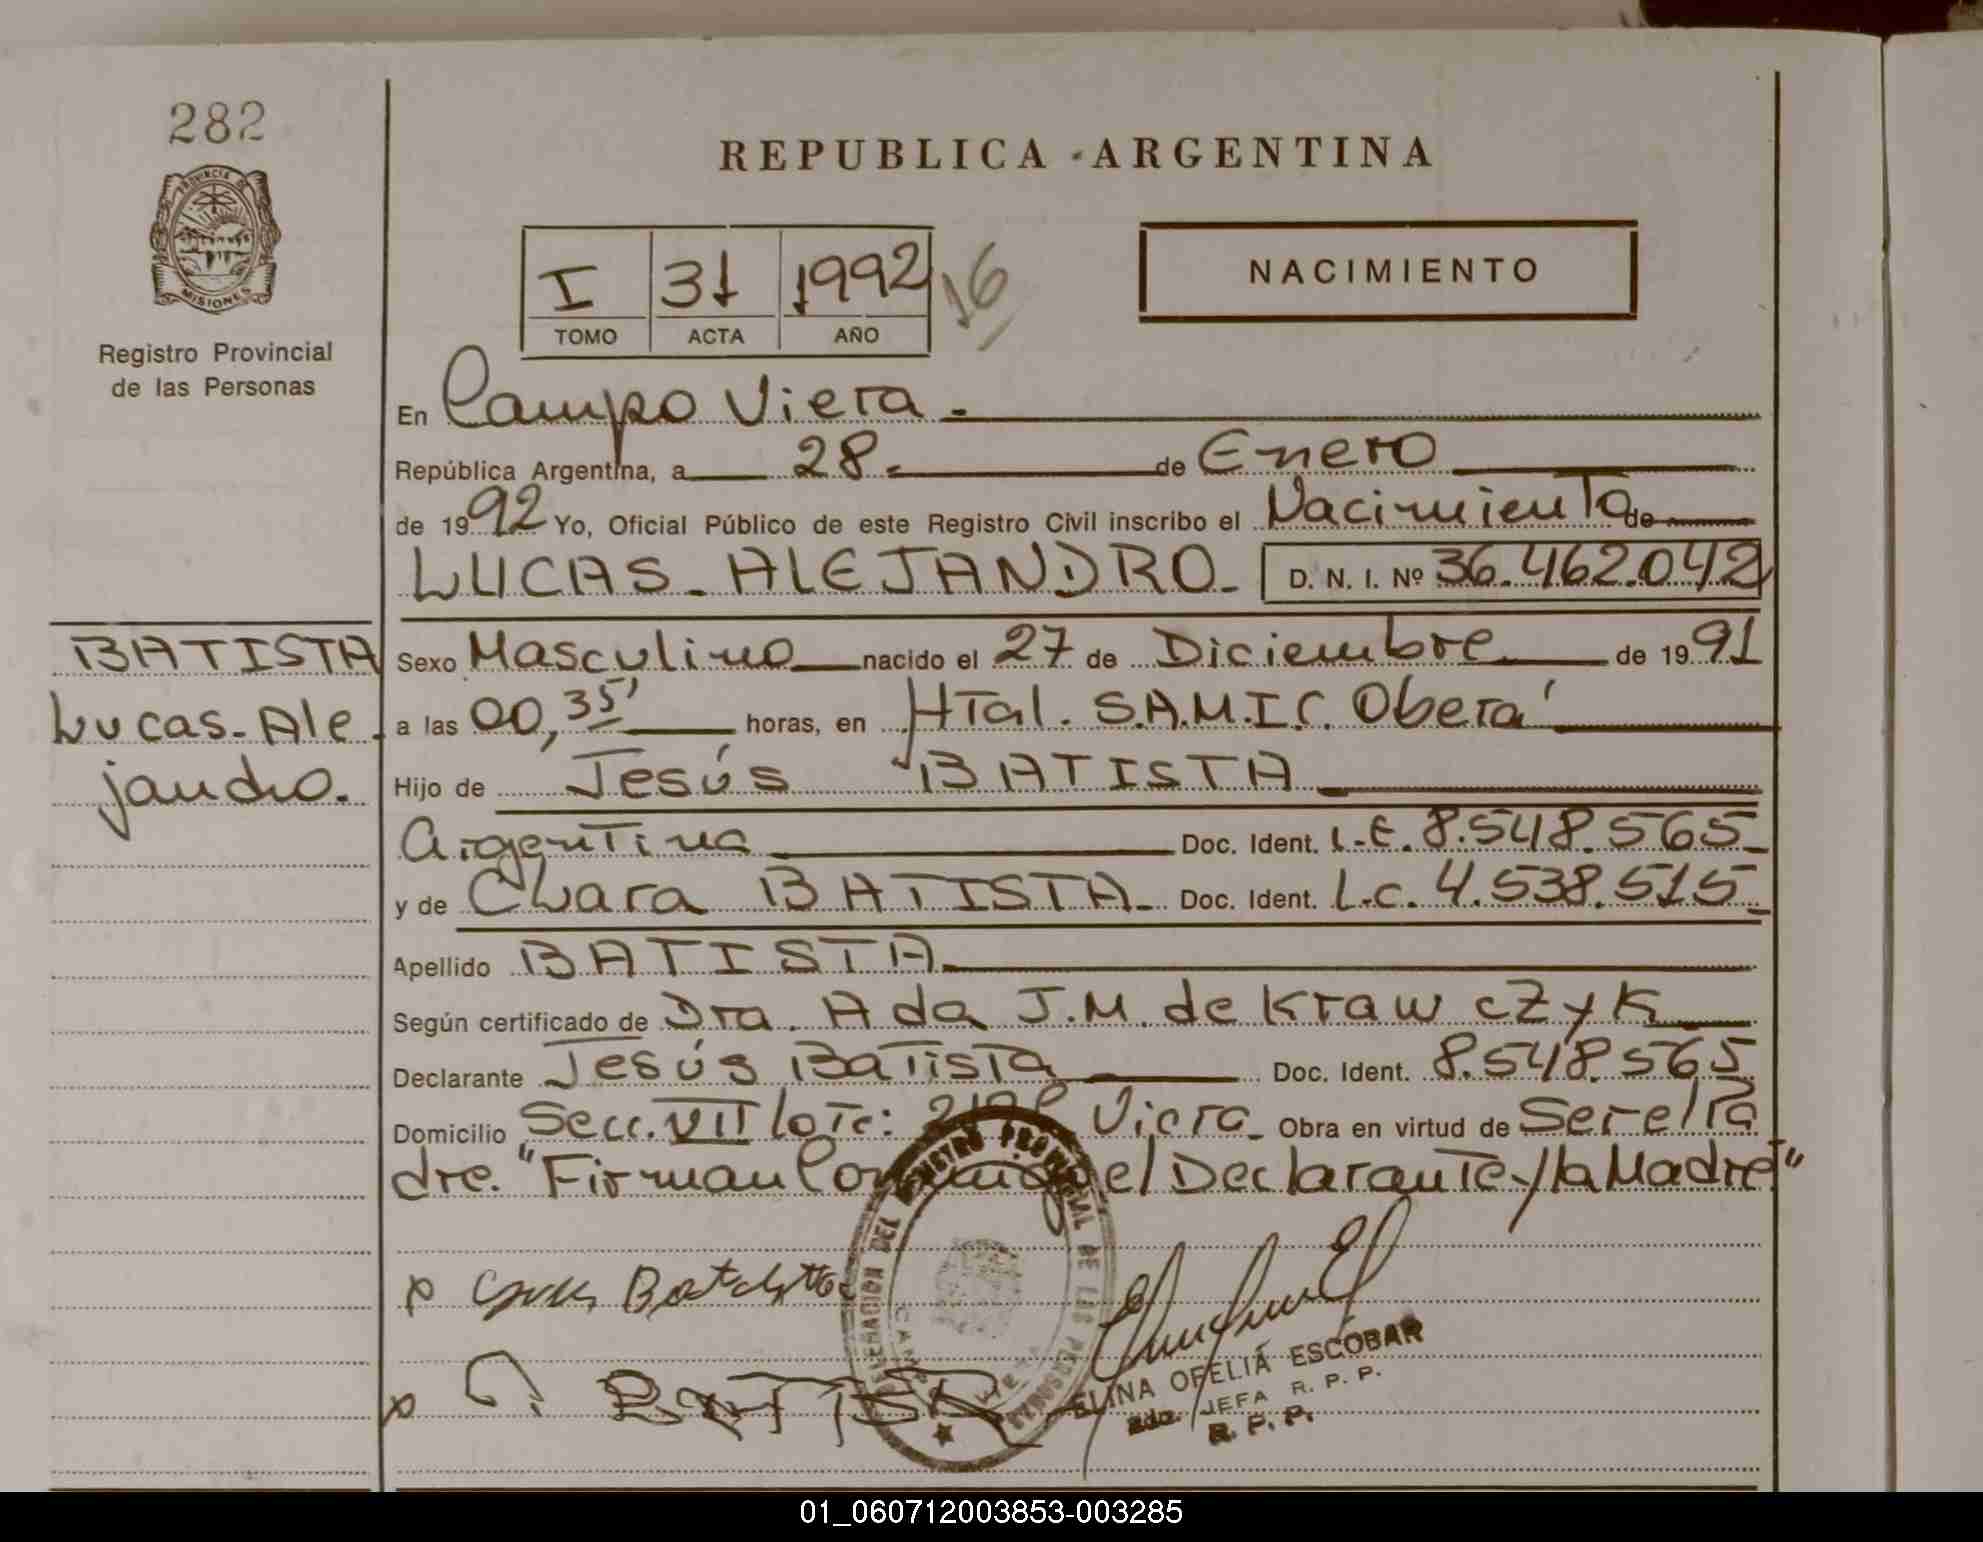 282
PROVINCIA DE
MISIONES
Registro Provincial
de las Personas
REPUBLICA ARGENTINA
I 31 1992 16
TOMO ACTA AÑO
NACIMIENTO
En Campo Viera.
República Argentina, a 28. de Enero
de 1992 Yo, Oficial Público de este Registro Civil inscribo el Nacimiento de
LUCAS-ALEJANDRO- D. N. I. Nº 36.462.042
BATISTA
Lucas-Ale
jandro.
Sexo Masculino nacido el 27 de Diciembre de 1991
a las 00,35' horas, en Htal. S.A.M.I.C. Oberá
Hijo de Jesús BATISTA
Argentina Doc. Ident. L.E. 8.548.565
y de Clara BATISTA Doc. Ident. L.C. 4.538.515
Apellido BATISTA
Según certificado de Dra. Ada J.M. de Krawczyk
Declarante Jesús Batista Doc. Ident. 8.548.565
Domicilio Secc. VII lote: Viera Obra en virtud de Ser el Pa
dre. "Firman Conmigo el Declarante y la Madre"
REGISTRO PROVINCIAL DE LAS PERSONAS
ELINA OFELIA ESCOBAR
2do. JEFA R. P. P.
R. P. P.
01_060712003853-003285